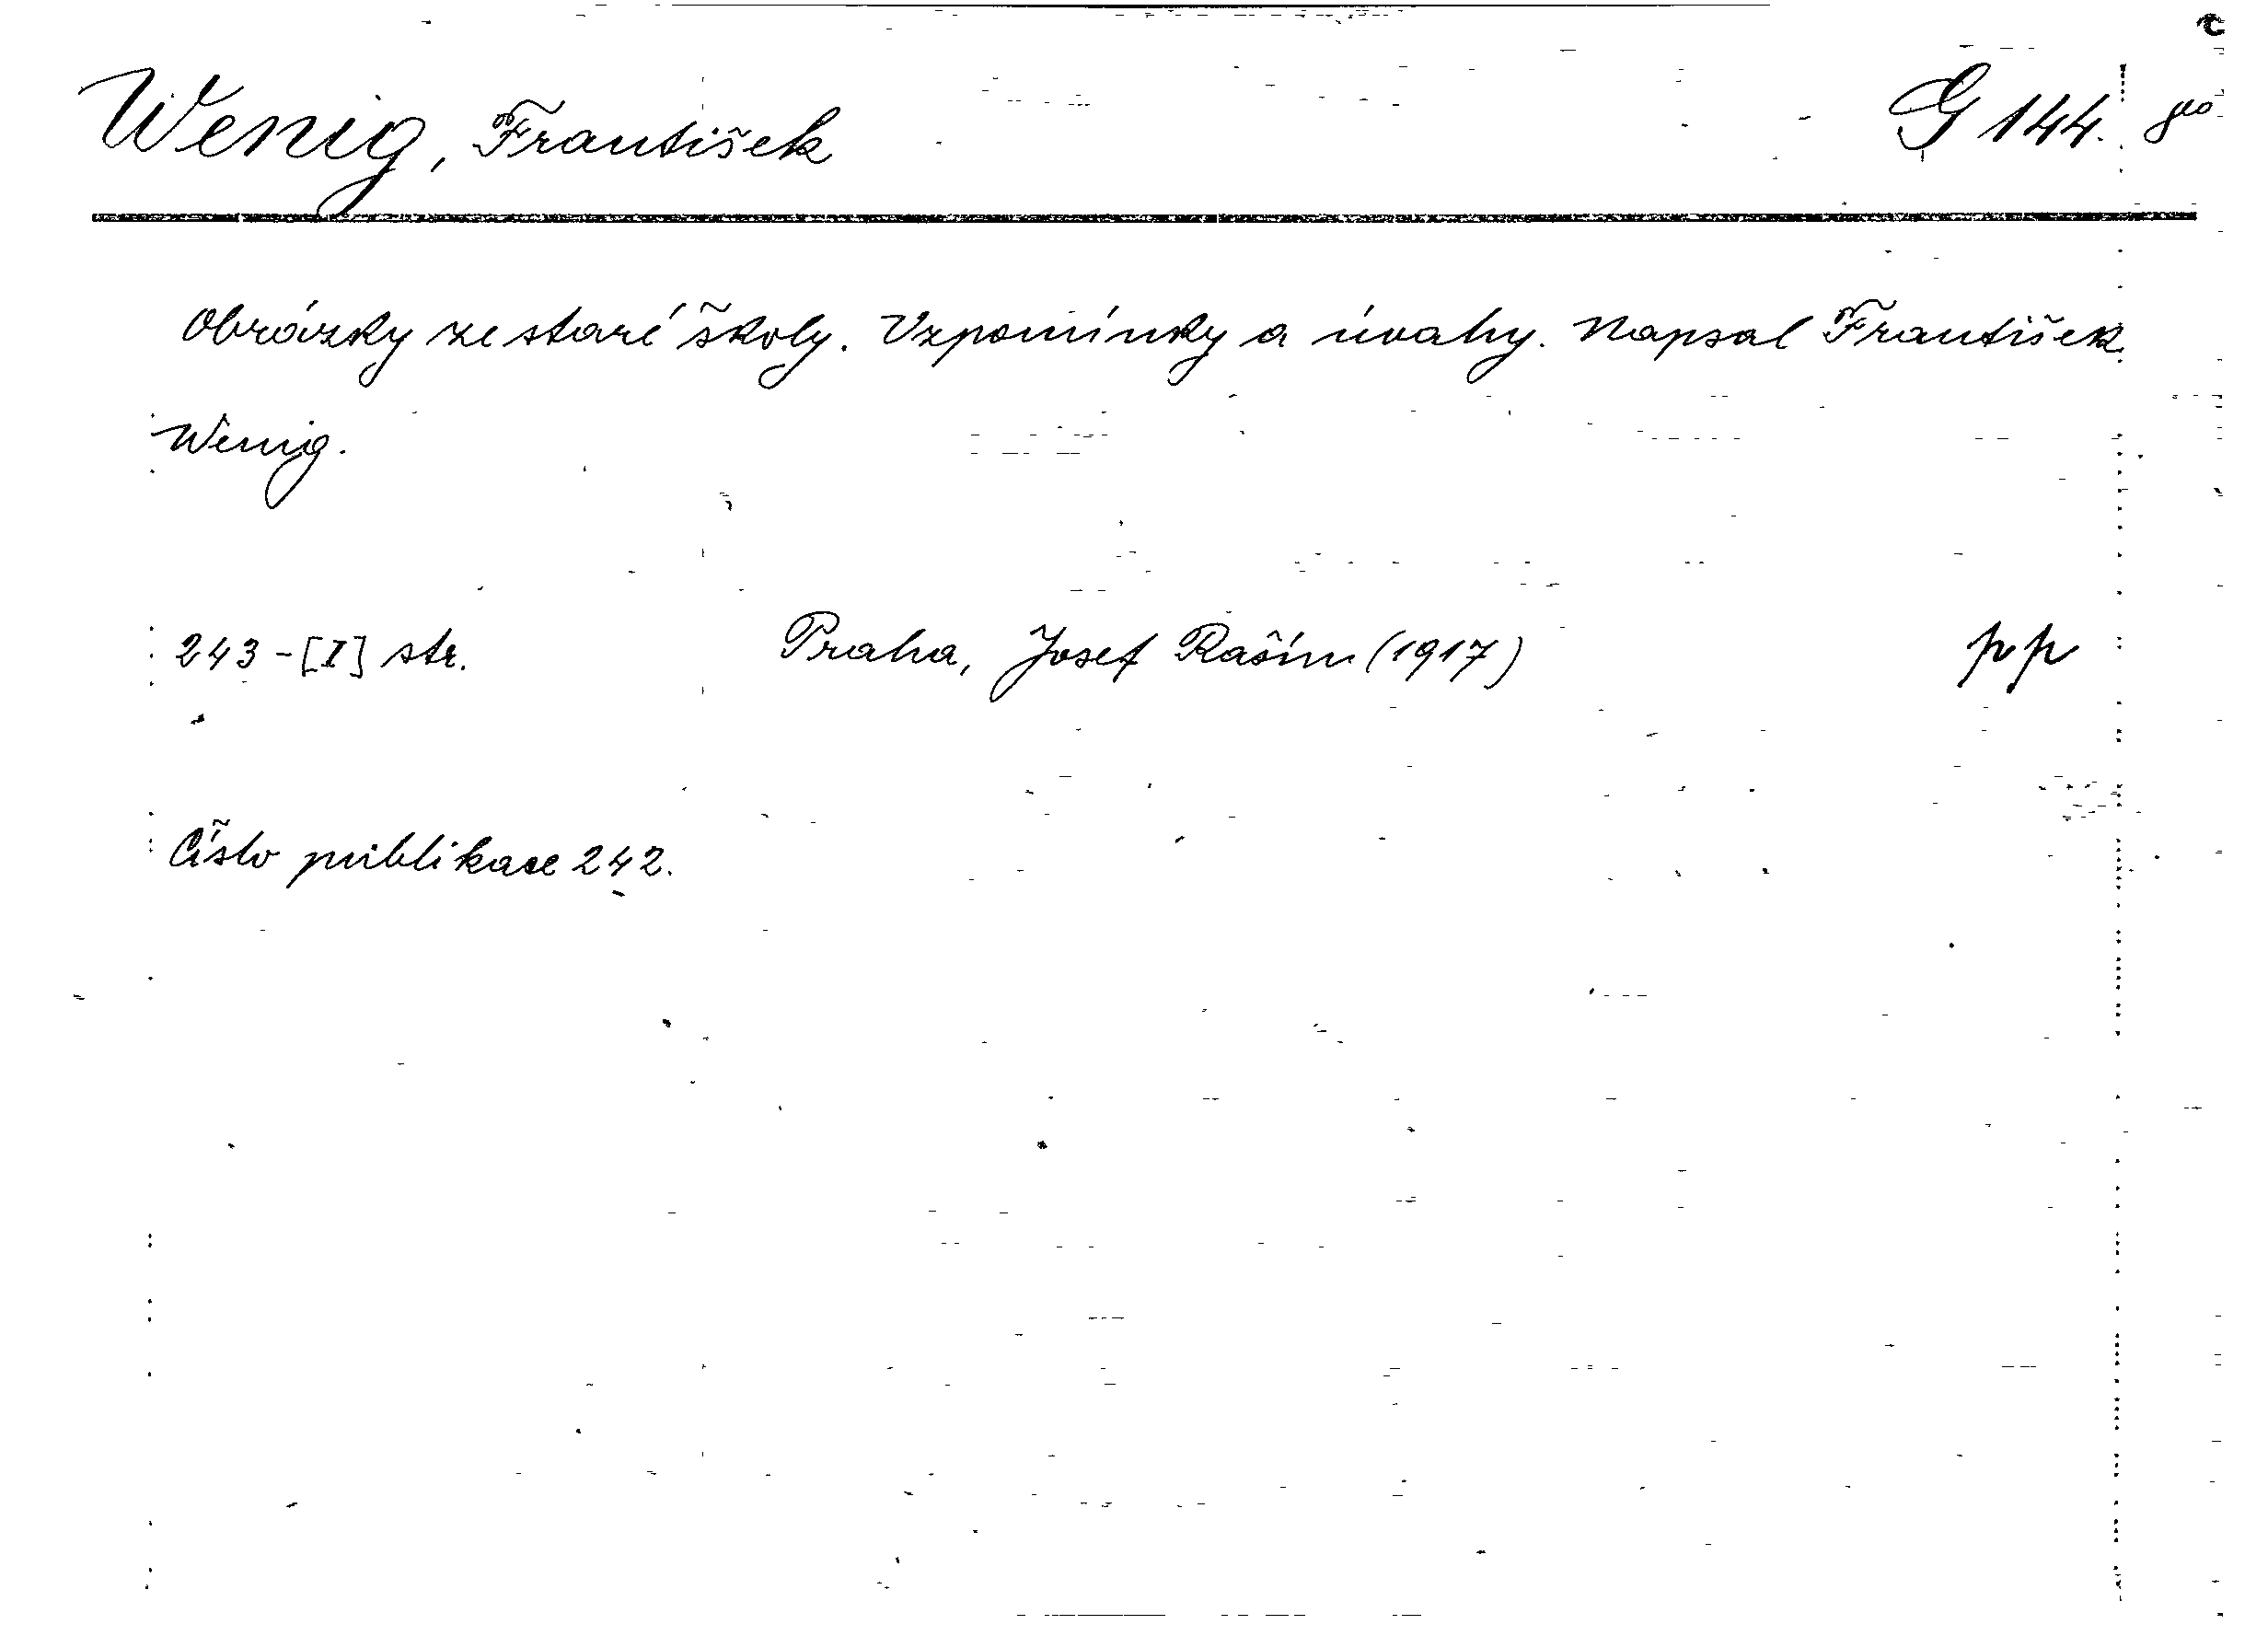 Wenig, František G 144. 8vo
Obrázky ze staré školy. Vzpomínky a úvahy. Napsal František
Wenig.
243-[I] str. Praha, Josef Rašín (1917) pp
Číslo publikace 242.